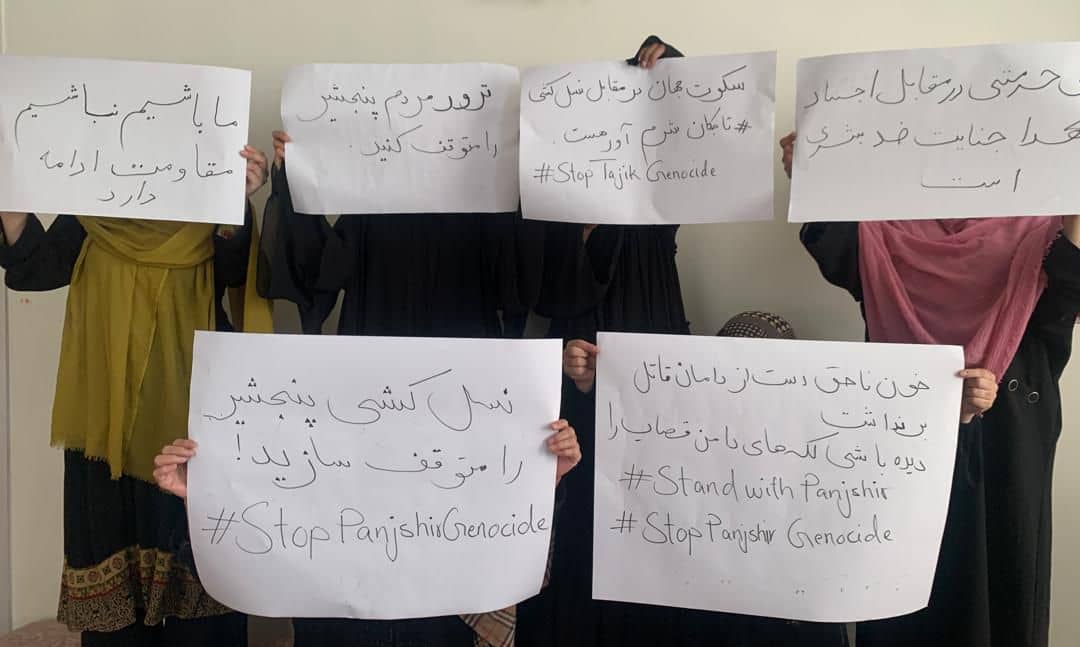 حرمتی در مقابل اجساد
جنایت ضد بشری
است
سکوت جهان در مقابل نسل کشی
#تاجکان شرم آور هست.
#Stop Tajik Genocide
ترور مردم پنجشیر
را متوقف کنید.
ما باشیم نباشیم
مقاومت ادامه
دارد
خون ناحق دست از دامان قاتل
بر نداشت
دیده باشی لکه های دامن قصاب را
#Stand with Panjshir
#Stop Panjshir Genocide
نسل کشی پنجشیر
را متوقف سازید!
#Stop Panjshir Genocide